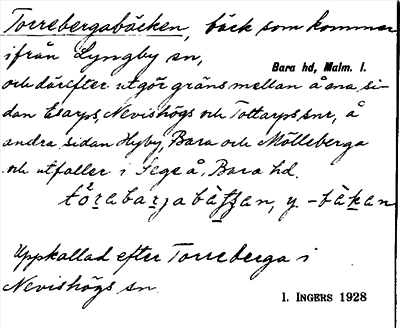 Torrebergabäcken, bäck som kommer
ifrån Lyngby sn,
Bara hd, Malm. l.
och därefter utgör gräns mellan å ena si-
dan Esarps, Nevishögs och Tottarps snr, å
andra sidan Hyby, Bara och Mölleberga
och utfaller i Sege å, Bara hd.
y. -bäkan
Uppkallad efter Torreberga i
Nevishögs sn.
I. INGERS 1928